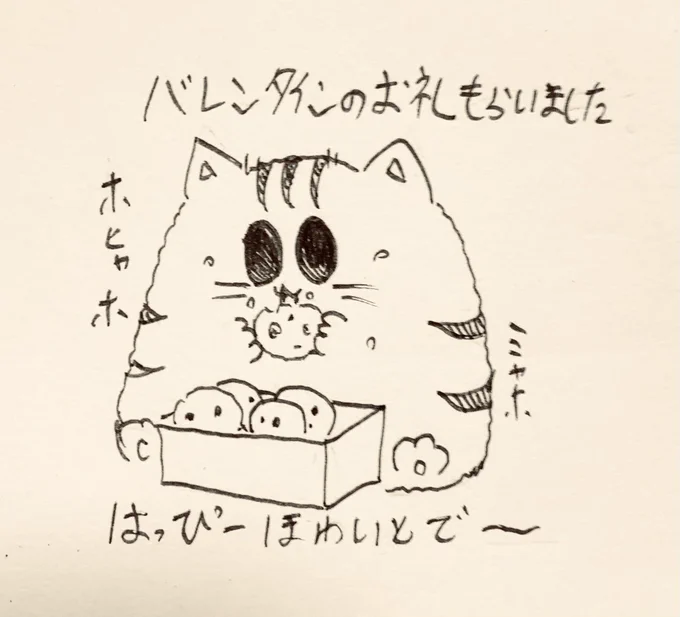 バレンタインのお礼もらいました
ホヒャホ
ミャホ
はっぴーほわいとで〜